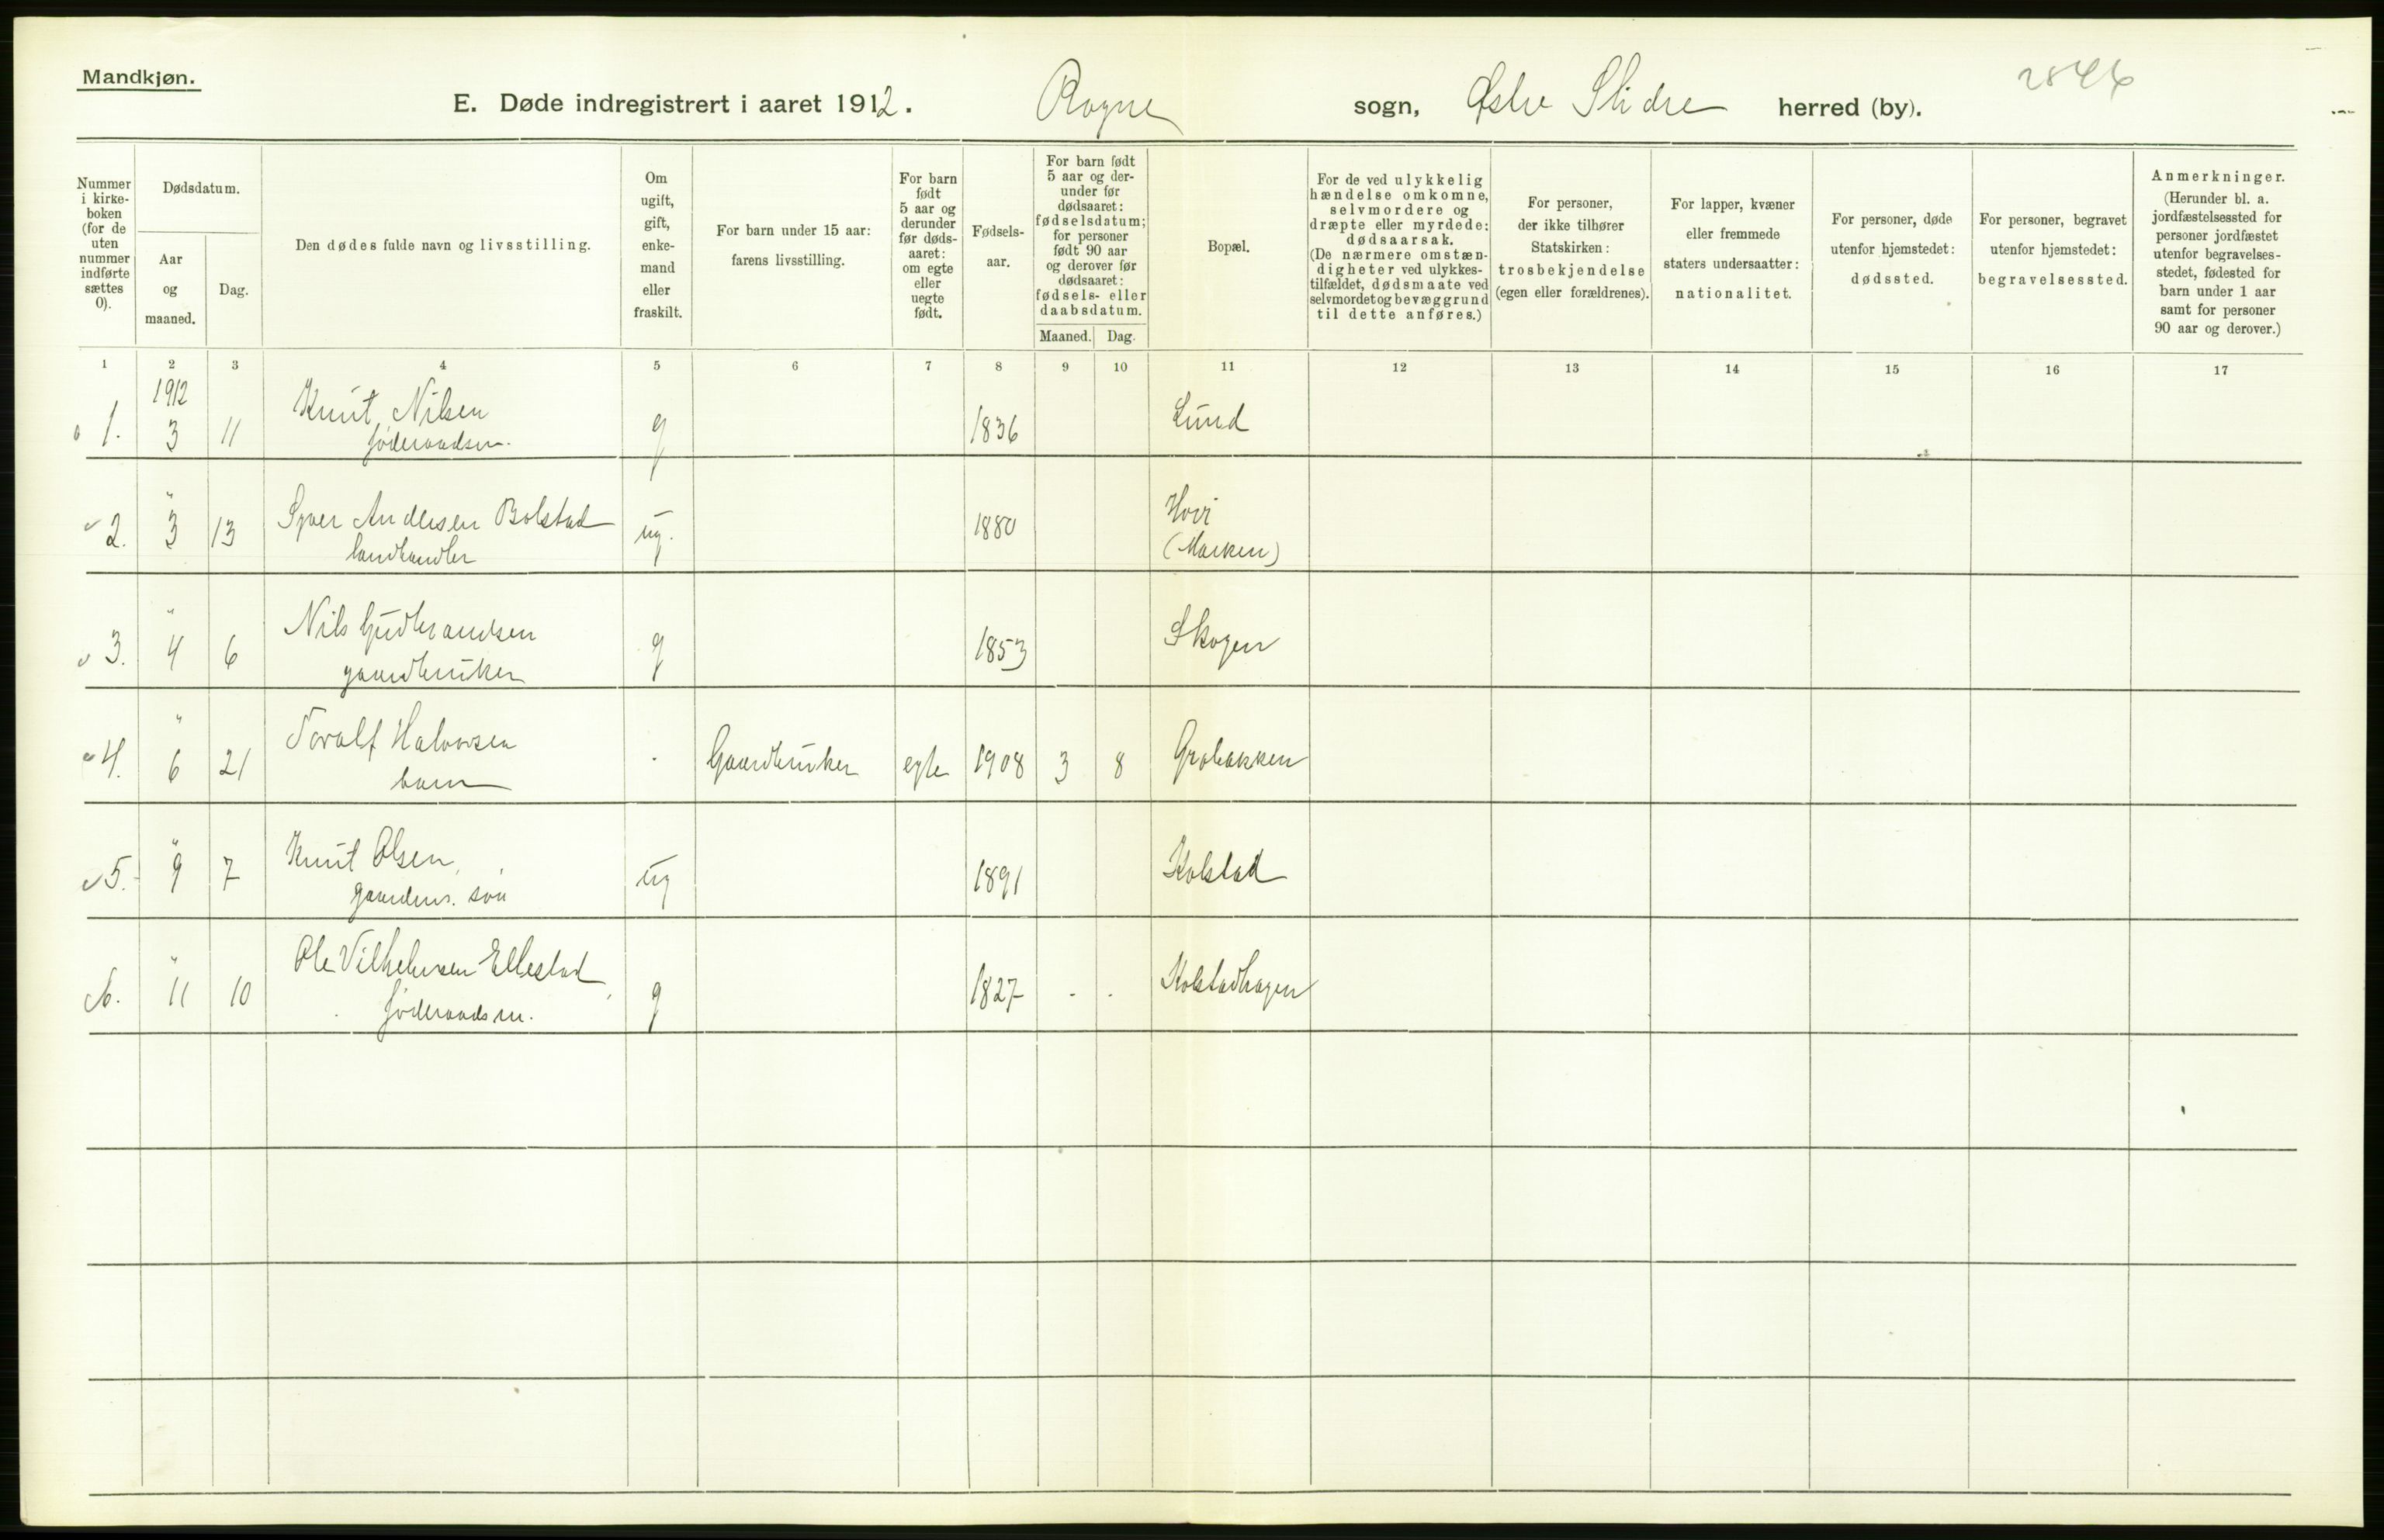 Mandkjøn.
E. Døde indregistrert i aaret 1912. Rogne sogn, Østre Slidre herred (by).
2846
Nummer i kirkeboken (for de uten nummer indførte sættes 0).
Dødsdatum.
Aar og maaned.
Dag.
Den dødes fulde navn og livsstilling.
Om ugift, gift, enkemand eller fraskilt.
For barn under 15 aar: farens livsstilling.
For barn født 5 aar og derunder før dødsaaret: om egte eller uegte født.
Fødselsaar.
For barn født 5 aar og derunder før dødsaaret: fødselsdatum; for personer født 90 aar og derover før dødsaaret: fødsels- eller daabsdatum.
Maaned. Dag.
Bopæl.
For de ved ulykkelig hændelse omkomne, selvmordere og dræpte eller myrdede: dødsaarsak. (De nærmere omstændigheter ved ulykkestilfældet, dødsmaate ved selvmordet og bevæggrund til dette anføres.)
For personer, der ikke tilhører Statskirken: trosbekjendelse (egen eller forældrenes).
For lapper, kvæner eller fremmede staters undersaatter: nationalitet.
For personer, døde utenfor hjemstedet: dødssted.
For personer, begravet utenfor hjemstedet: begravelsessted.
Anmerkninger. (Herunder bl. a. jordfæstelsessted for personer jordfæstet utenfor begravelsesstedet, fødested for barn under 1 aar samt for personer 90 aar og derover.)
1 2 3 4 5 6 7 8 9 10 11 12 13 14 15 16 17
1912
1. 3 11 Knut Nilsen g 1836 Lund
føderaadsm.
"
2. 3 13 Syver Andersen Bolstad ug. 1880 Hovi
landhandler (Marken)
"
3. 4 6 Nils Gudbrandsen g 1853 Skogen
gaardbruker
"
4. 6 21 Toralf Halvorsen . Gaardbruker egte 1908 3 8 Grobakken
barn
"
5. 9 7 Knut Olsen, ug 1891 Kolstad
gaardmr. søn
"
6. 11 10 Ole Vilhelmsen Ellestad, g 1827 - - Kolstadhagen
føderaadsm.